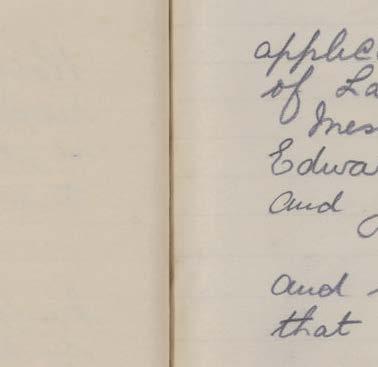 applic
of La
Mes
Edwa
and
and
that